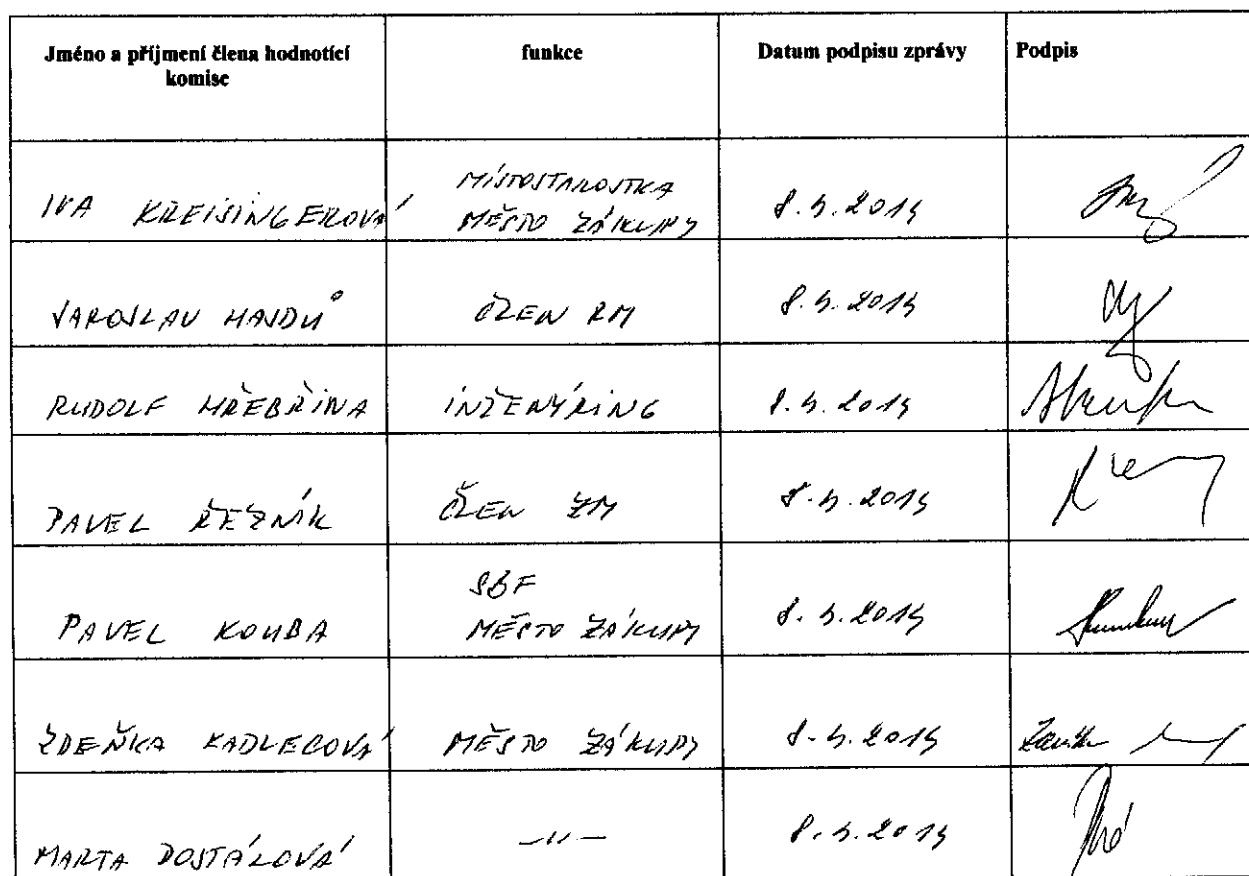 Jméno a příjmení člena hodnotící
komise
funkce
Datum podpisu zprávy
Podpis
IVA KREISINGEROVÁ
MÍSTOSTAROSTKA
MĚSTO ZÁKUPY
8.4.2014
JAROSLAV HAJDŮ
ČLEN RM
8.4.2014
RUDOLF HŘEBŘINA
INŽENÝRING
8.4.2014
PAVEL ŘEZNÍK
ČLEN ZM
8.4.2014
PAVEL KOUBA
SBF
MĚSTO ZÁKUPY
8.4.2014
ZDEŇKA KADLECOVÁ
MĚSTO ZÁKUPY
8.4.2014
MARTA DOSTÁLOVÁ
—"—
8.4.2014